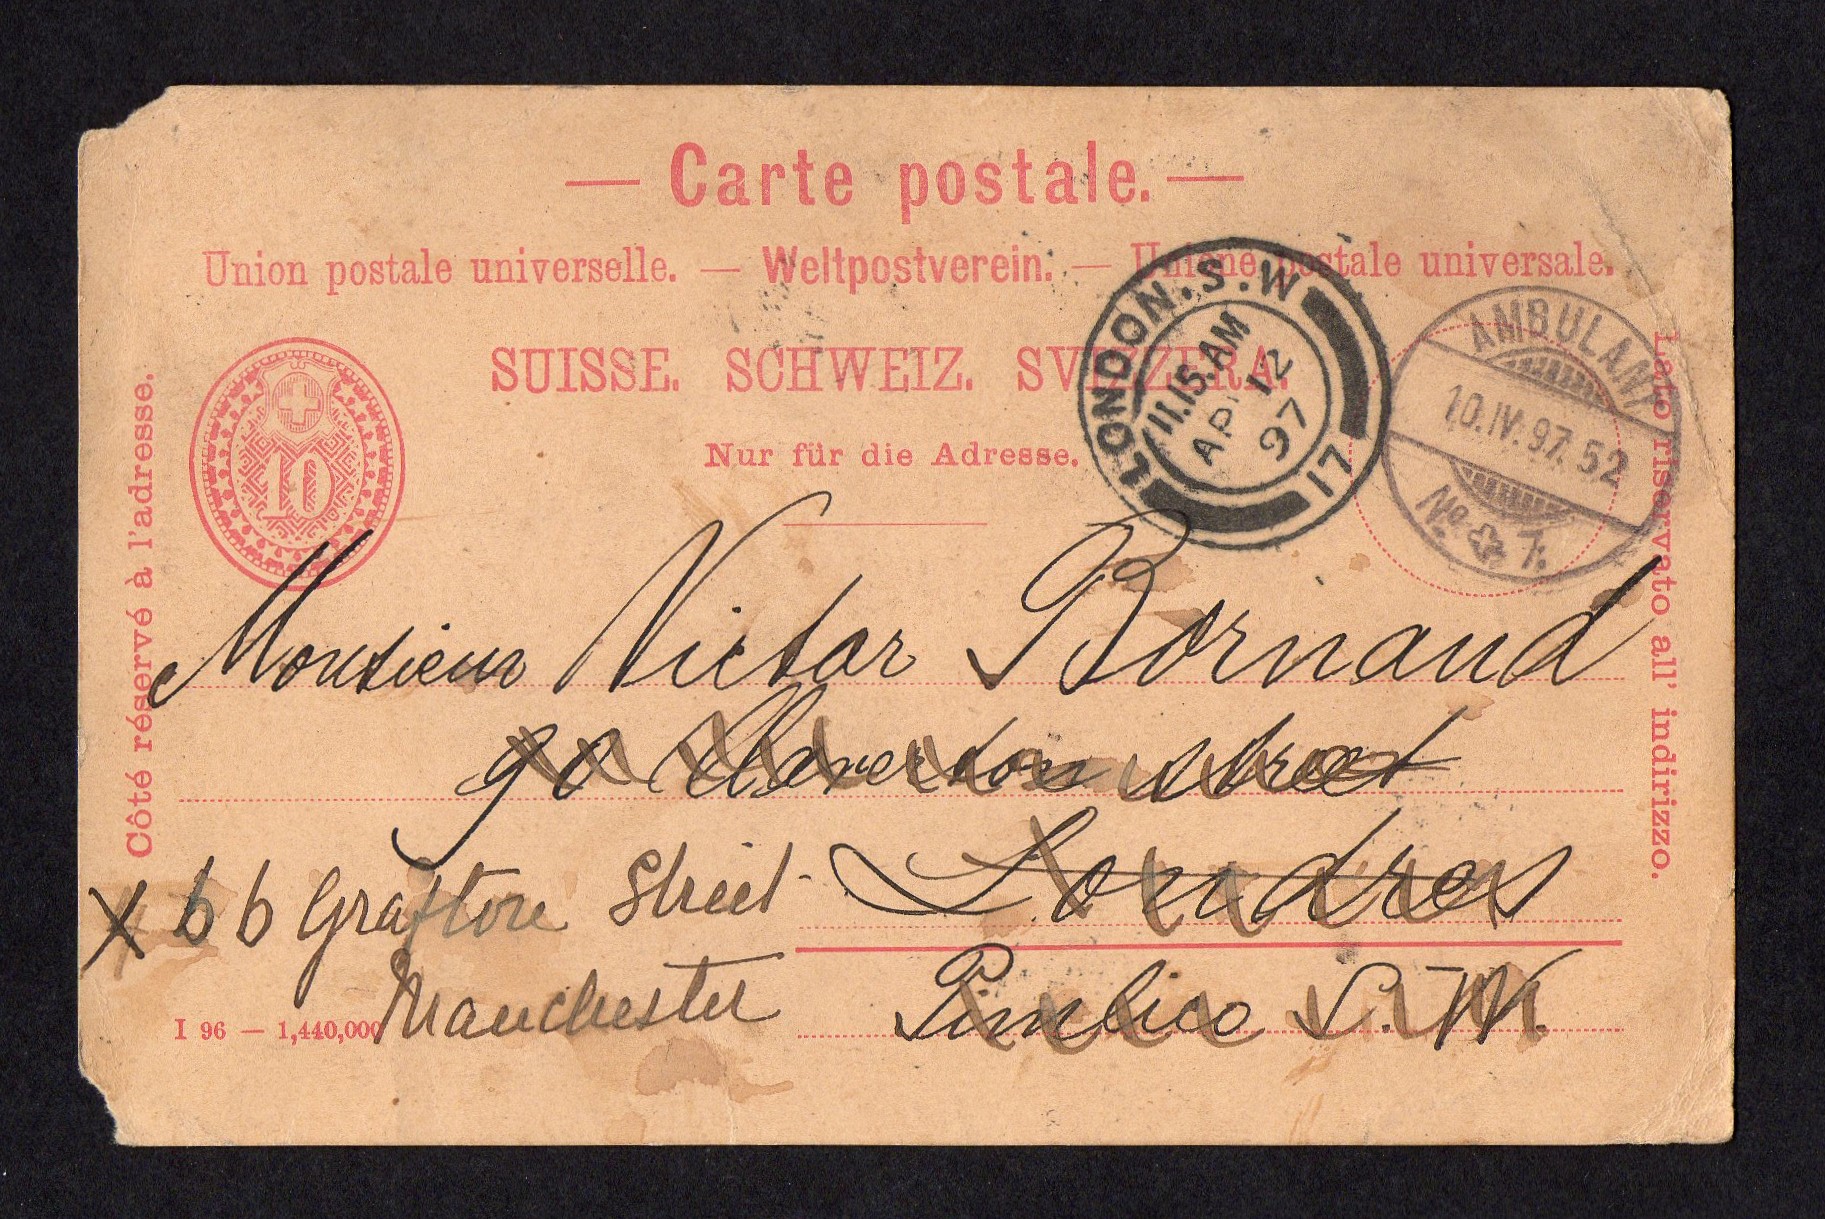 — Carte postale. —
Union postale universelle. — Weltpostverein. — Unione postale universale.
SUISSE. SCHWEIZ. SVIZZERA.
Nur für die Adresse.
Côté réservé à l'adresse.
Lato riservato all' indirizzo.
10
LONDON.S.W
11.15.AM
AP 12
97
17
AMBULANT
10.IV.97.52
No. 7.
Monsieur Victor Bornand
90 Claverton street
Londres
Pimlico S.W.
X 66 Grafton Street
Manchester
I 96 — 1,440,000